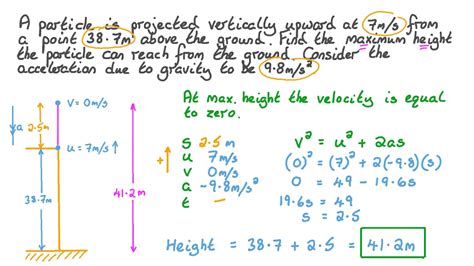 A particle is projected vertically upward at 7m/s from
a point 38.7m above the ground. Find the maximum height
the particle can reach from the ground. Consider the
acceleration due to gravity to be 9.8m/s²
At max. height the velocity is equal
to zero.
v = 0m/s
a
2.5m
u = 7m/s ↑
38.7m
41.2m
+
s 2.5 m
u 7m/s
v 0m/s
a -9.8m/s²
t –
v² = u² + 2as
(0)² = (7)² + 2(-9.8)(s)
0 = 49 - 19.6s
19.6s = 49
s = 2.5
Height = 38.7 + 2.5 = 41.2m